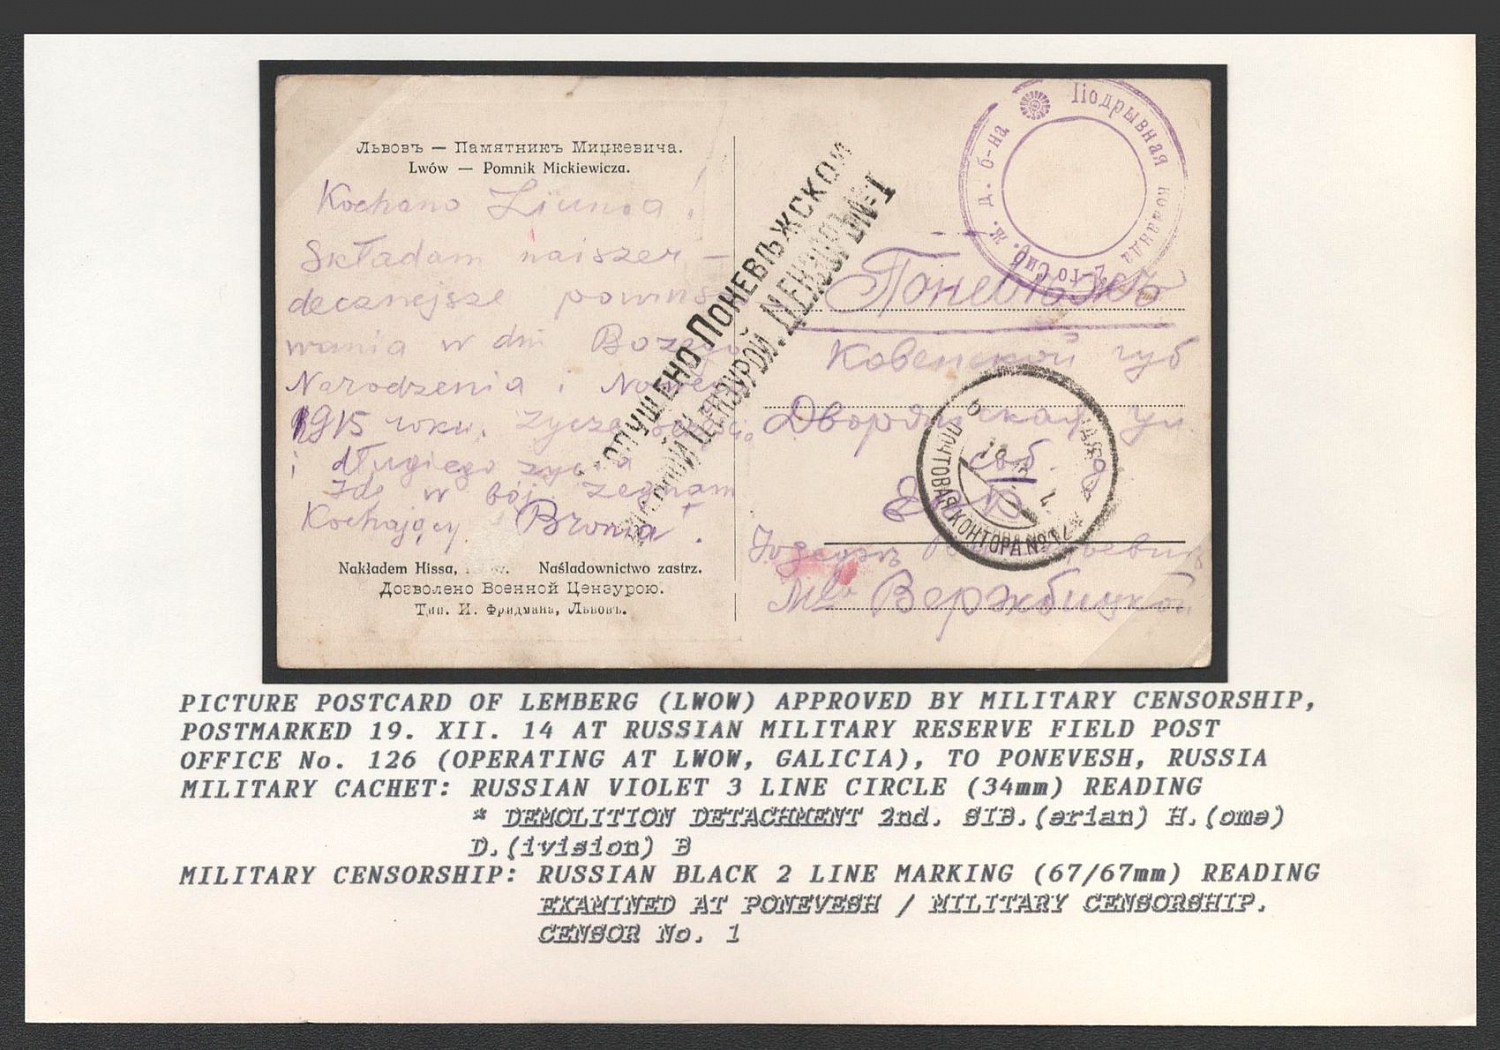 Львовъ — Памятникъ Мицкевича.
Lwów — Pomnik Mickiewicza.
Kochano Ziunia!
Składam naiszer-
decznejsze powinszo
wania w dni Bożego
Narodzenia i Nowego
1915 roku. życzę
i długiego życia
Idę w bój. żegnam
Kochający Bronia.
Nakładem Hissa, Naśladownictwo zastrz.
Дозволено Военной Цензурою.
Тип. И. Фридмана, Львовъ.
ДОПУЩЕНО ПОНЕВѢЖСКОЙ
ВОЕННОЙ ЦЕНЗУРОЙ. ЦЕНЗОРЪ №1
Подрывная команда 2-го Сиб. ж. д. б-на
Поневѣжъ
Ковенской губ
Дворянская ул.
соб.
ПОЧТОВАЯ КОНТОРА №
Вержбицкой
PICTURE POSTCARD OF LEMBERG (LWOW) APPROVED BY MILITARY CENSORSHIP,
POSTMARKED 19. XII. 14 AT RUSSIAN MILITARY RESERVE FIELD POST
OFFICE No. 126 (OPERATING AT LWOW, GALICIA), TO PONEVESH, RUSSIA
MILITARY CACHET: RUSSIAN VIOLET 3 LINE CIRCLE (34mm) READING
* DEMOLITION DETACHMENT 2nd. SIB.(erian) H.(ome)
D.(ivision) B
MILITARY CENSORSHIP: RUSSIAN BLACK 2 LINE MARKING (67/67mm) READING
EXAMINED AT PONEVESH / MILITARY CENSORSHIP.
CENSOR No. 1